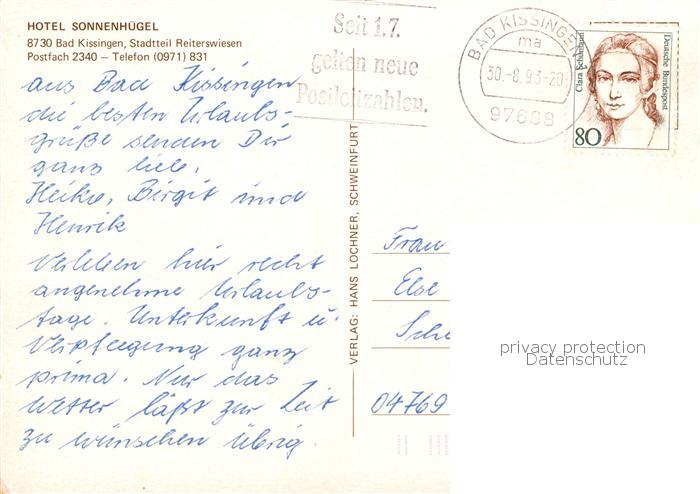 HOTEL SONNENHÜGEL
8730 Bad Kissingen, Stadtteil Reiterswiesen
Postfach 2340 – Telefon (0971) 831
aus Bad Kissingen
die besten Urlaubs-
grüße senden Dir
ganz lieb,
Heiko, Birgit und
Henrik
Verleben hier recht
angenehme Urlaubs-
tage. Unterkunft u.
Verpflegung ganz
prima. Nur das
Wetter läßt zur Zeit
zu wünschen übrig.
VERLAG: HANS LOCHNER, SCHWEINFURT
Seit 1.7.
gelten neue
Postleitzahlen.
BAD KISSINGEN
ma
30.-8.93-20
97688
Clara Schumann
Deutsche Bundespost
80
Frau
Else
Sch
04769
privacy protection
Datenschutz